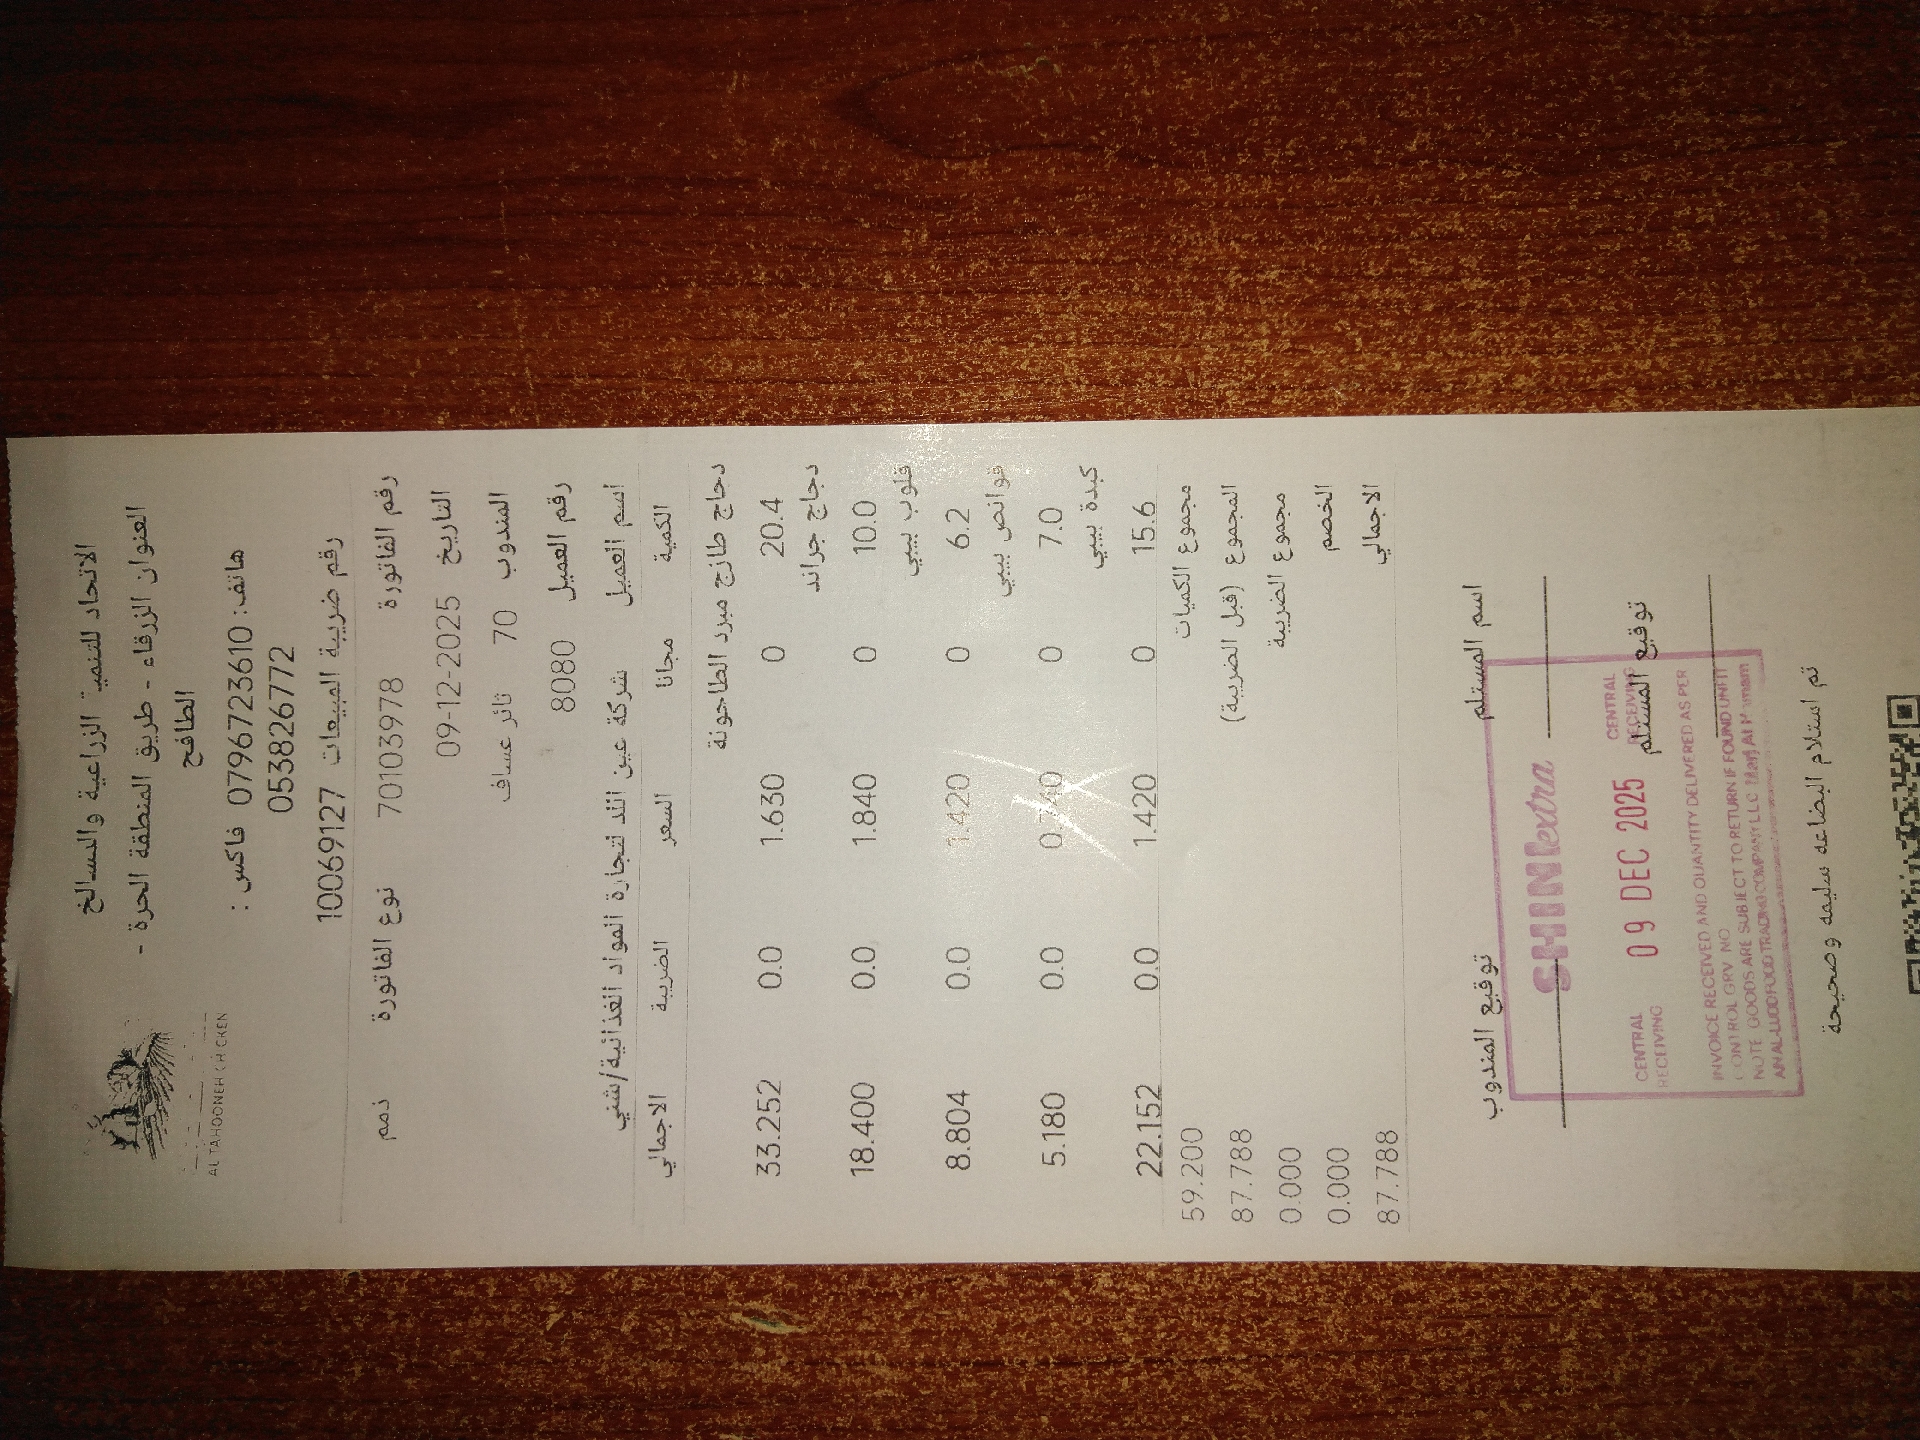 AL TAHOONEH CHICKEN
الاتحاد للتنمية الزراعية والمسالخ
العنوان الزرقاء - طريق المنطقة الحرة -
الطافح
هاتف: 0796723610 فاكس :
0538826772
رقم ضريبة المبيعات 10069127
رقم الفاتورة 70103978 نوع الفاتورة ذمم
التاريخ 09-12-2025
المندوب 70 ثائر عساف
رقم العميل 8080
اسم العميل شركة عين اللد لتجارة المواد الغذائية/شني
الكمية مجانا السعر الضريبة الاجمالي
دجاج طازج مبرد الطاحونة
20.4 0 1.630 0.0 33.252
دجاج جراند
10.0 0 1.840 0.0 18.400
قلوب بيبي
6.2 0 1.420 0.0 8.804
قوانص بيبي
7.0 0 0.740 0.0 5.180
كبدة بيبي
15.6 0 1.420 0.0 22.152
مجموع الكميات 59.200
المجموع (قبل الضريبة) 87.788
مجموع الضريبة 0.000
الخصم 0.000
الاجمالي 87.788
اسم المستلم توقيع المندوب
توقيع المستلم
SHINIextra
CENTRAL RECEIVING 09 DEC 2025 CENTRAL RECEIVING
INVOICE RECEIVED AND QUANTITY DELIVERED AS PER
CONTROL GRV NO
NOTE GOODS ARE SUBJECT TO RETURN IF FOUND UNFIT
AIN AL-LUDD FOOD TRADING COMPANY LLC Marj Al Hamam
تم استلام البضاعه سليمه وصحيحة